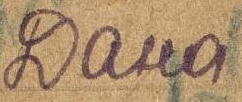 Дана